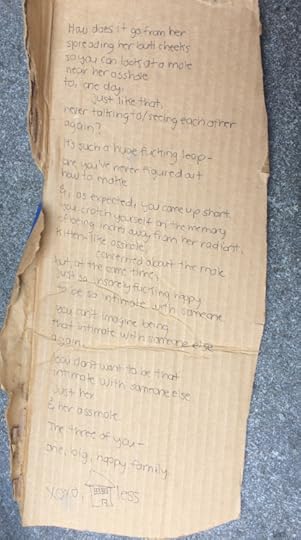 How does it go from her
spreading her butt cheeks
so you can look at a mole
near her asshole
to, one day,
just like that,
never talking to/seeing each other
again?
It's such a huge fucking leap-
one you've never figured out
how to make
&, as expected, you come up short.
You crotch yourself on the memory
of being inches away from her radiant,
kitten-like asshole
concerned about the mole
but, at the same time,
just so insanely fucking happy
to be so intimate with someone
You can't imagine being
that intimate with someone else
again.
You don't want to be that
intimate with someone else
Just her
& her assmole.
The three of you-
one, big, happy family.
xoxo, less